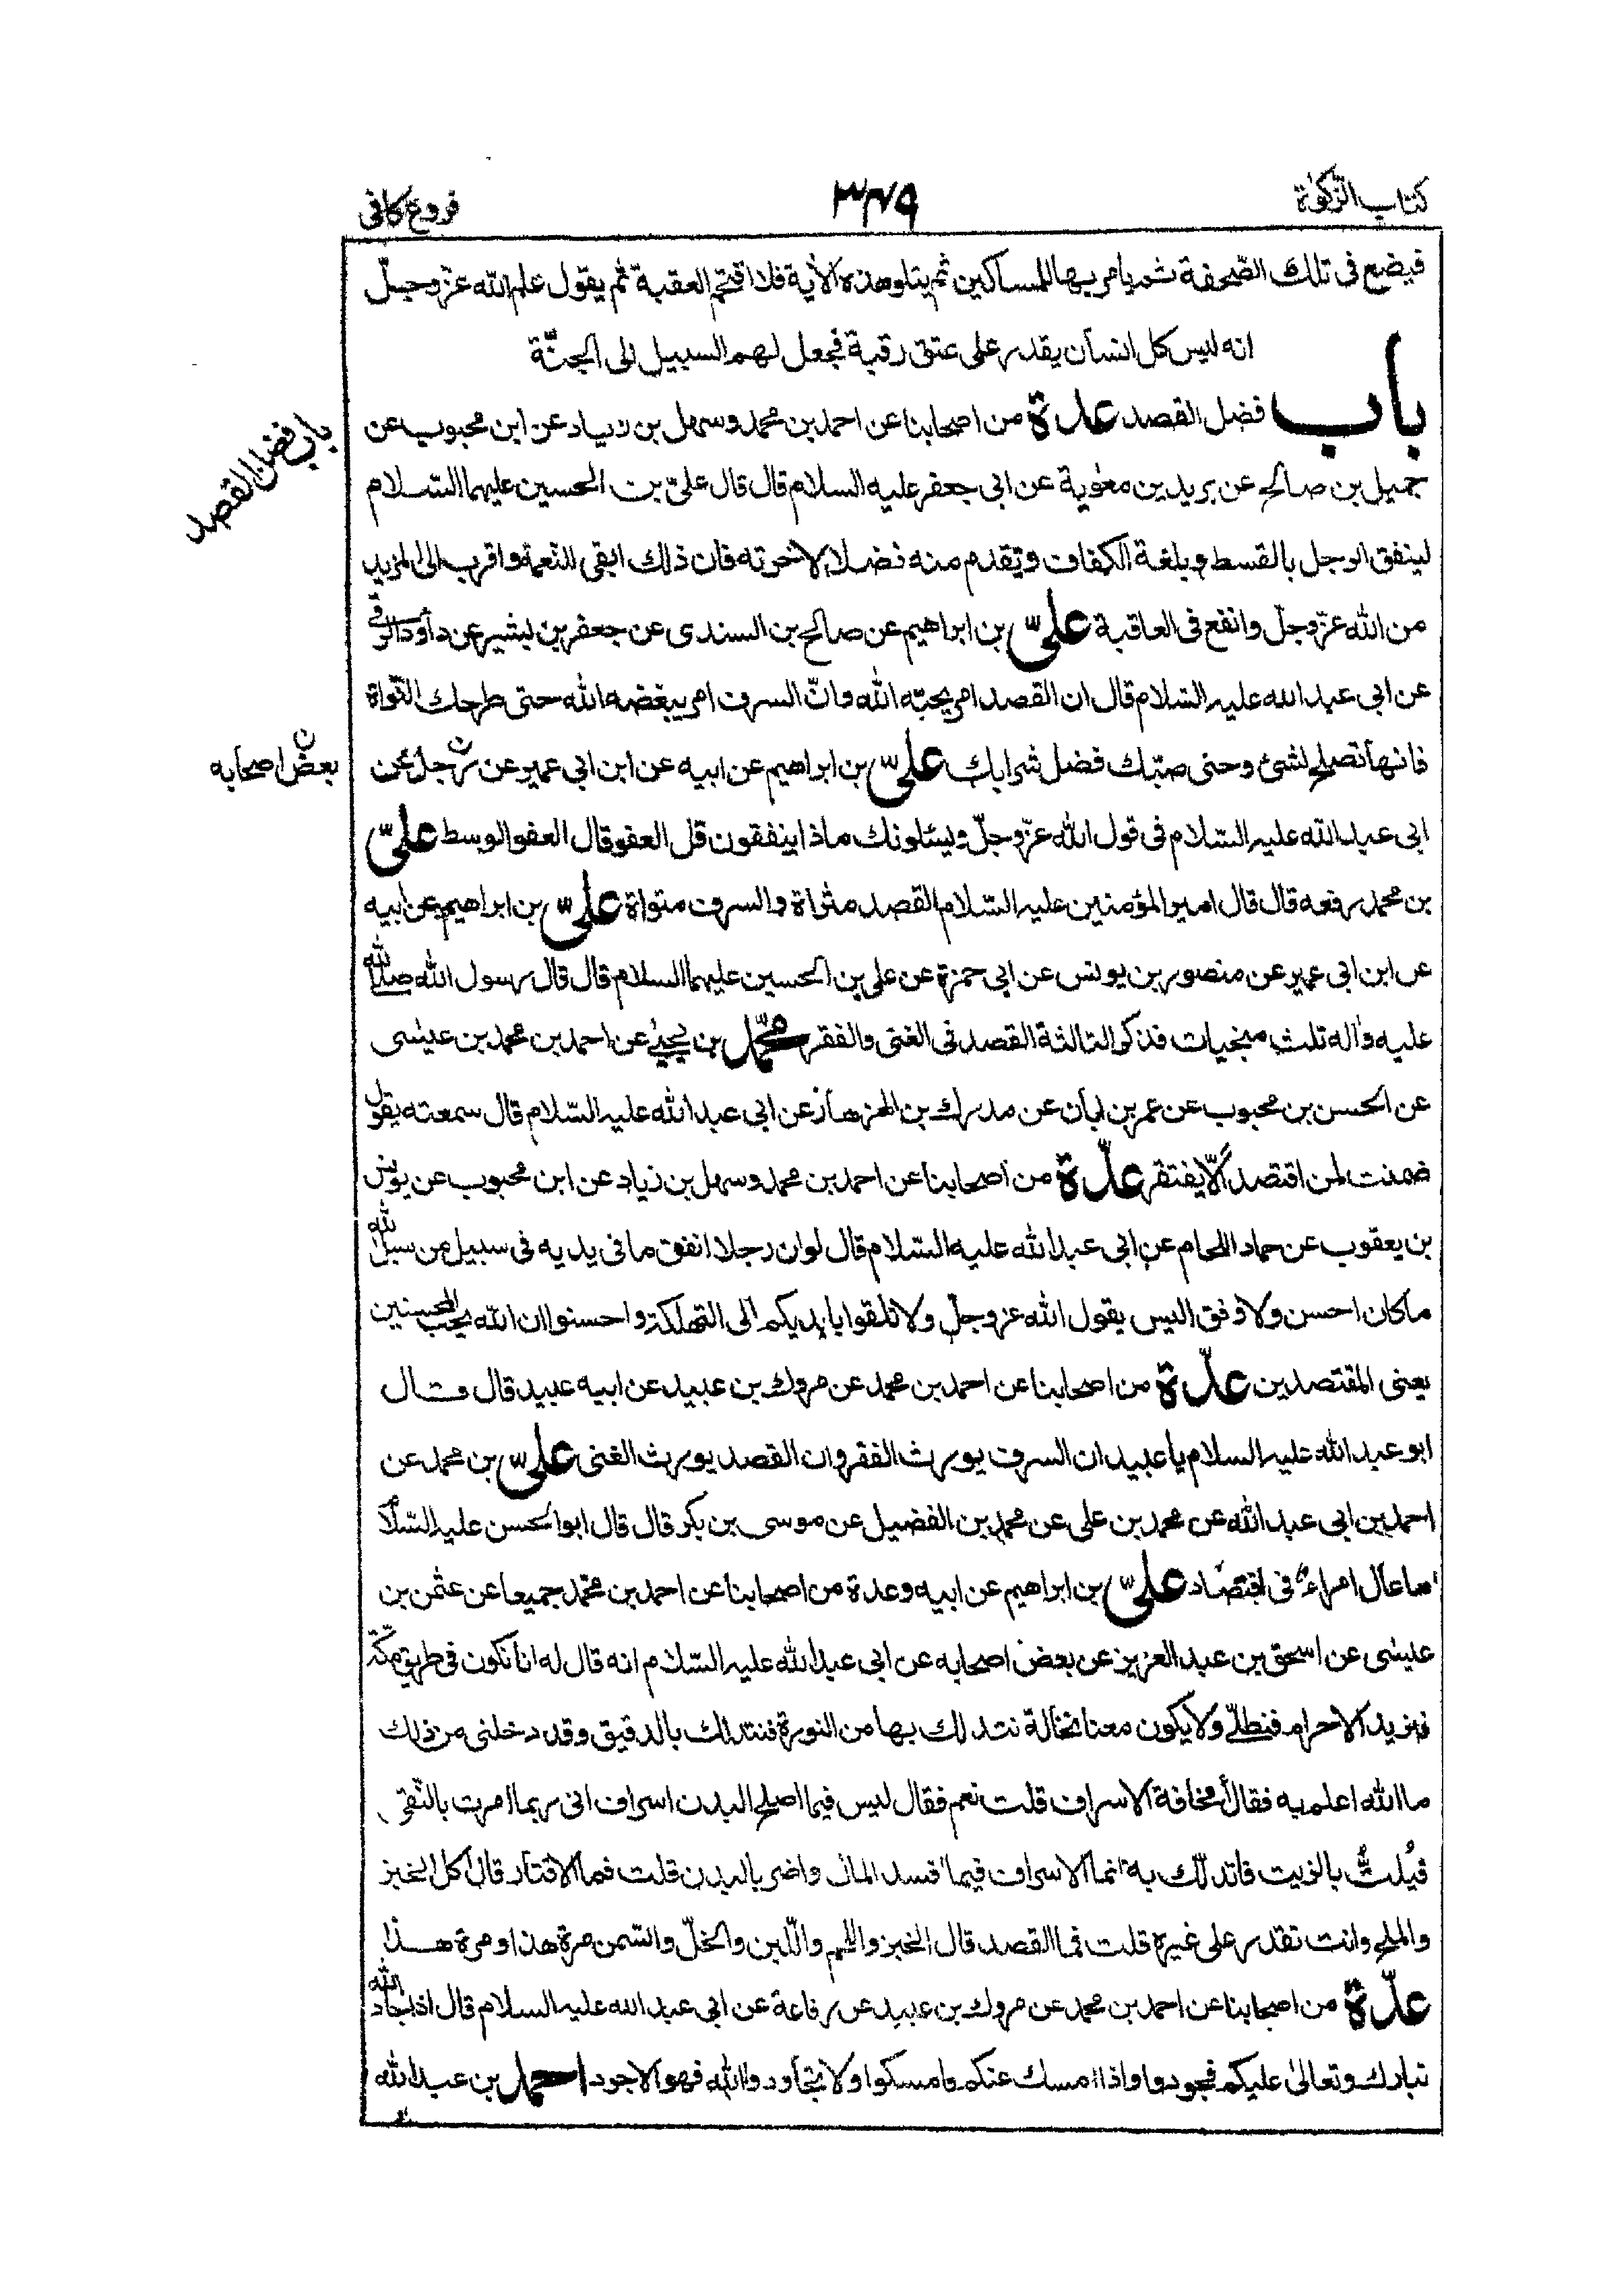 كتاب الزكوة
٣٤٩
فروع كافى
فيضع فى تلك الصّحفة ثم يامر بها للمساكين ثم يتلو هذه الأية فلا اقتحم العقبة ثم يقول علم الله عزّ وجلّ
انه ليس كل انسان يقدر على عتق رقبة فجعل لهم السبيل الى الجنّة
باب فضل القصد عدة من اصحابنا عن احمد بن محمد وسهل بن زياد عن ابن محبوب عن
باب فضل القصد
جميل بن صالح عن بريد بن معوية عن ابى جعفر عليه السلام قال قال علىّ بن الحسين عليهما السّلام
لينفق الرجل بالقسط وبلغة الكفاف ويقدم منه فضلا لاخرته فان ذلك ابقى للنعمة واقرب الى المزيد
من الله عزّ وجلّ وانفع فى العاقبة علىّ بن ابراهيم عن صالح بن السندى عن جعفر بن بشير عن داود الرقى
عن ابى عبد الله عليه السّلام قال ان القصد امر يحبّه الله وانّ السرف امر يبغضه الله حتى طرحك النّواة
فانها تصلح لشئ وحتى صبّك فضل شرابك علىّ بن ابراهيم عن ابيه عن ابن ابى عمير عن رجل عن
ن بعض اصحابه
ابى عبد الله عليه السّلام فى قول الله عزّ وجلّ ويسئلونك ماذا ينفقون قل العفو قال العفو الوسط علىّ
بن محمد رفعه قال قال امير المؤمنين عليه السّلام القصد مثراة والسرف متواة علىّ بن ابراهيم عن ابيه
عن ابن ابى عمير عن منصور بن يونس عن ابى حمزة عن على بن الحسين عليهما السلام قال قال رسول الله صلى الله
عليه واله ثلث منجيات فذكر الثالثة القصد فى الغنى والفقر محمّد بن يحيى عن احمد بن محمد بن عيسى
عن الحسن بن محبوب عن عمر بن ابان عن مدرك بن الهزهاز عن ابى عبد الله عليه السّلام قال سمعته يقول
ضمنت لمن اقتصد ألّا يفتقر عدّة من اصحابنا عن احمد بن محمد وسهل بن زياد عن ابن محبوب عن يونس
بن يعقوب عن حماد اللحام عن ابى عبد الله عليه السّلام قال لو ان رجلا انفق ما فى يديه فى سبيل من سبل الله
ما كان احسن ولا وفق اليس يقول الله عز وجلّ ولا تلقوا بايديكم الى التهلكة واحسنوا ان الله يحب المحسنين
يعنى المقتصدين عدّة من اصحابنا عن احمد بن محمد عن مروك بن عبيد عن ابيه عبيد قال قال
ابو عبد الله عليه السلام يا عبيد ان السرف يورث الفقر وان القصد يورث الغنى علىّ بن محمد عن
احمد بن ابى عبد الله عن محمد بن على عن محمد بن الفضيل عن موسى بن بكر قال قال ابو الحسن عليه السّلام
ما عال امراء فى اقتصاد علىّ بن ابراهيم عن ابيه وعدة من اصحابنا عن احمد بن محمّد جميعا عن عثمن بن
عيسى عن اسحق بن عبد العزيز عن بعض اصحابه عن ابى عبد الله عليه السّلام انه قال له انا نكون فى طريق مكّة
فنريد الاحرام فنطلّى ولا يكون معنا نخالة نتدلك بها من النورة فنتدلك بالدقيق وقد دخلنى من ذلك
ما الله اعلم به فقال أمخافة الاسراف قلت نعم فقال ليس فيما اصلح البدن اسراف انى ربما امرت بالنّقى
فيُلتّ بالزيت فاتدلّك به انما الاسراف فيما افسد المال واضر بالبدن قلت فما الاقتار قال اكل الخبز
والملح وانت تقدر على غيره قلت فما القصد قال الخبز واللحم واللّبن والخلّ والسّمن مرة هذا ومرة هذا
عدّة من اصحابنا عن احمد بن محمد عن مروك بن عبيد عن رفاعة عن ابى عبد الله عليه السلام قال اذا جاد الله
تبارك وتعالى عليكم فجودوا واذا امسك عنكم فامسكوا ولا تجاودوا الله فهو الاجود احمد بن عبد الله